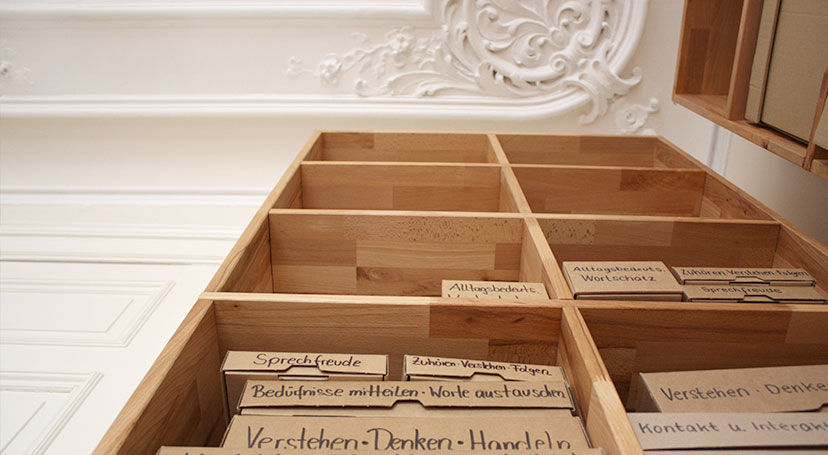 Alltagsbedeuts
Alltagsbedeuts.
Wortschatz
Zuhören·Verstehen·Folgen
Sprechfreude
Sprechfreude
Zuhören·Verstehen·Folgen
Bedüfnisse mitteilen · Worte austauschen
Verstehen · Denken · Handeln
Verstehen · Denken
Kontakt u. Interakt